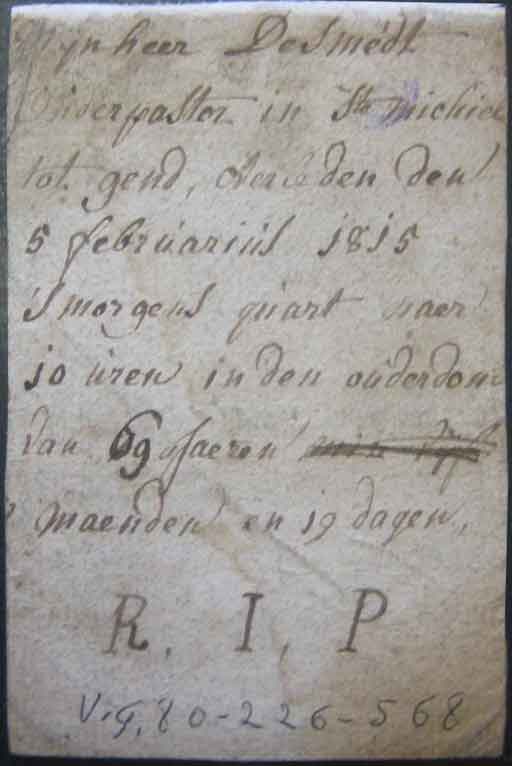 Mijn heer DeSmedt
onderpastor in Ste michiel
tot gend, overleden den
5 februariùs 1815
S'morgens quart naer
10 ùren in den oùderdom
van 69 Jaeren
maenden en 19 dagen,
R. I. P
V.G. 80-226-568